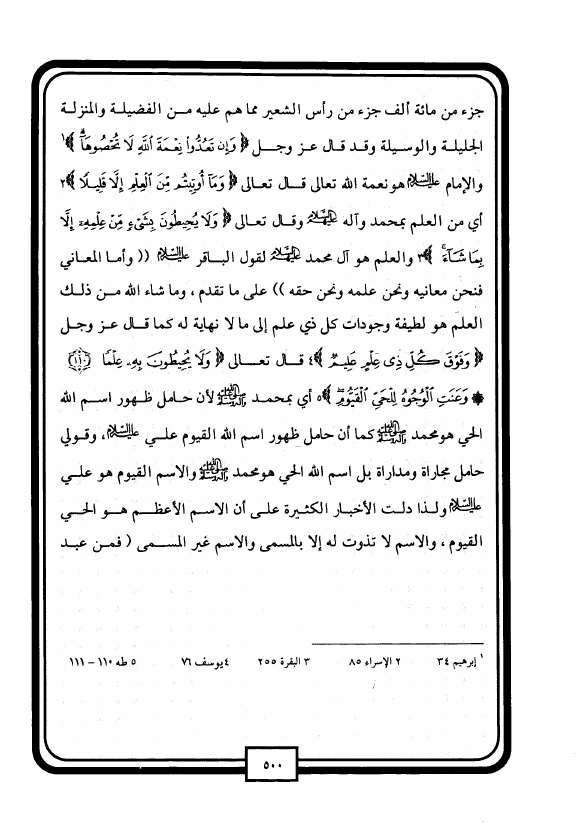 جزء من مائة ألف جزء من رأس الشعير مما هم عليه من الفضيلة والمنزلة
الجليلة والوسيلة وقد قال عز وجل ﴿ وَإِن تَعُدُّوا۟ نِعْمَةَ ٱللَّهِ لَا تُحْصُوهَآ ﴾١
والإمام عليه السلام هو نعمة الله تعالى قال تعالى ﴿ وَمَآ أُوتِيتُم مِّنَ ٱلْعِلْمِ إِلَّا قَلِيلًا ﴾٢
أي من العلم بمحمد وآله عليهم السلام وقال تعالى ﴿ وَلَا يُحِيطُونَ بِشَىْءٍ مِّنْ عِلْمِهِۦٓ إِلَّا
بِمَا شَآءَ ۚ ﴾٣ والعلم هو آل محمد عليهم السلام لقول الباقر عليه السلام (( وأما المعاني
فنحن معانيه ونحن علمه ونحن حقه )) على ما تقدم ، وما شاء الله من ذلك
العلم هو لطيفة وجودات كل ذي علم إلى ما لا نهاية له كما قال عز وجل
﴿ وَفَوْقَ كُلِّ ذِى عِلْمٍ عَلِيمٌ ﴾٤ قال تعالى ﴿ وَلَا يُحِيطُونَ بِهِۦ عِلْمًا ﴿١١٠﴾
۞ وَعَنَتِ ٱلْوُجُوهُ لِلْحَىِّ ٱلْقَيُّومِ ۖ ﴾٥ أي بمحمد صلى الله عليه وآله وسلم لأن حامل ظهور اسم الله
الحي هو محمد صلى الله عليه وآله وسلم كما أن حامل ظهور اسم الله القيوم علي عليه السلام ، وقولي
حامل مجاراة ومداراة بل اسم الله الحي هو محمد صلى الله عليه وآله وسلم والاسم القيوم هو علي
عليه السلام ولذا دلت الأخبار الكثيرة على أن الاسم الأعظم هو الحي
القيوم ، والاسم لا تذوت له إلا بالمسمى والاسم غير المسمى ( فمن عبد
١ إبرهيم ٣٤ ٢ الإسراء ٨٥ ٣ البقرة ٢٥٥ ٤ يوسف ٧٦ ٥ طه ١١٠ – ١١١
٥٠٠